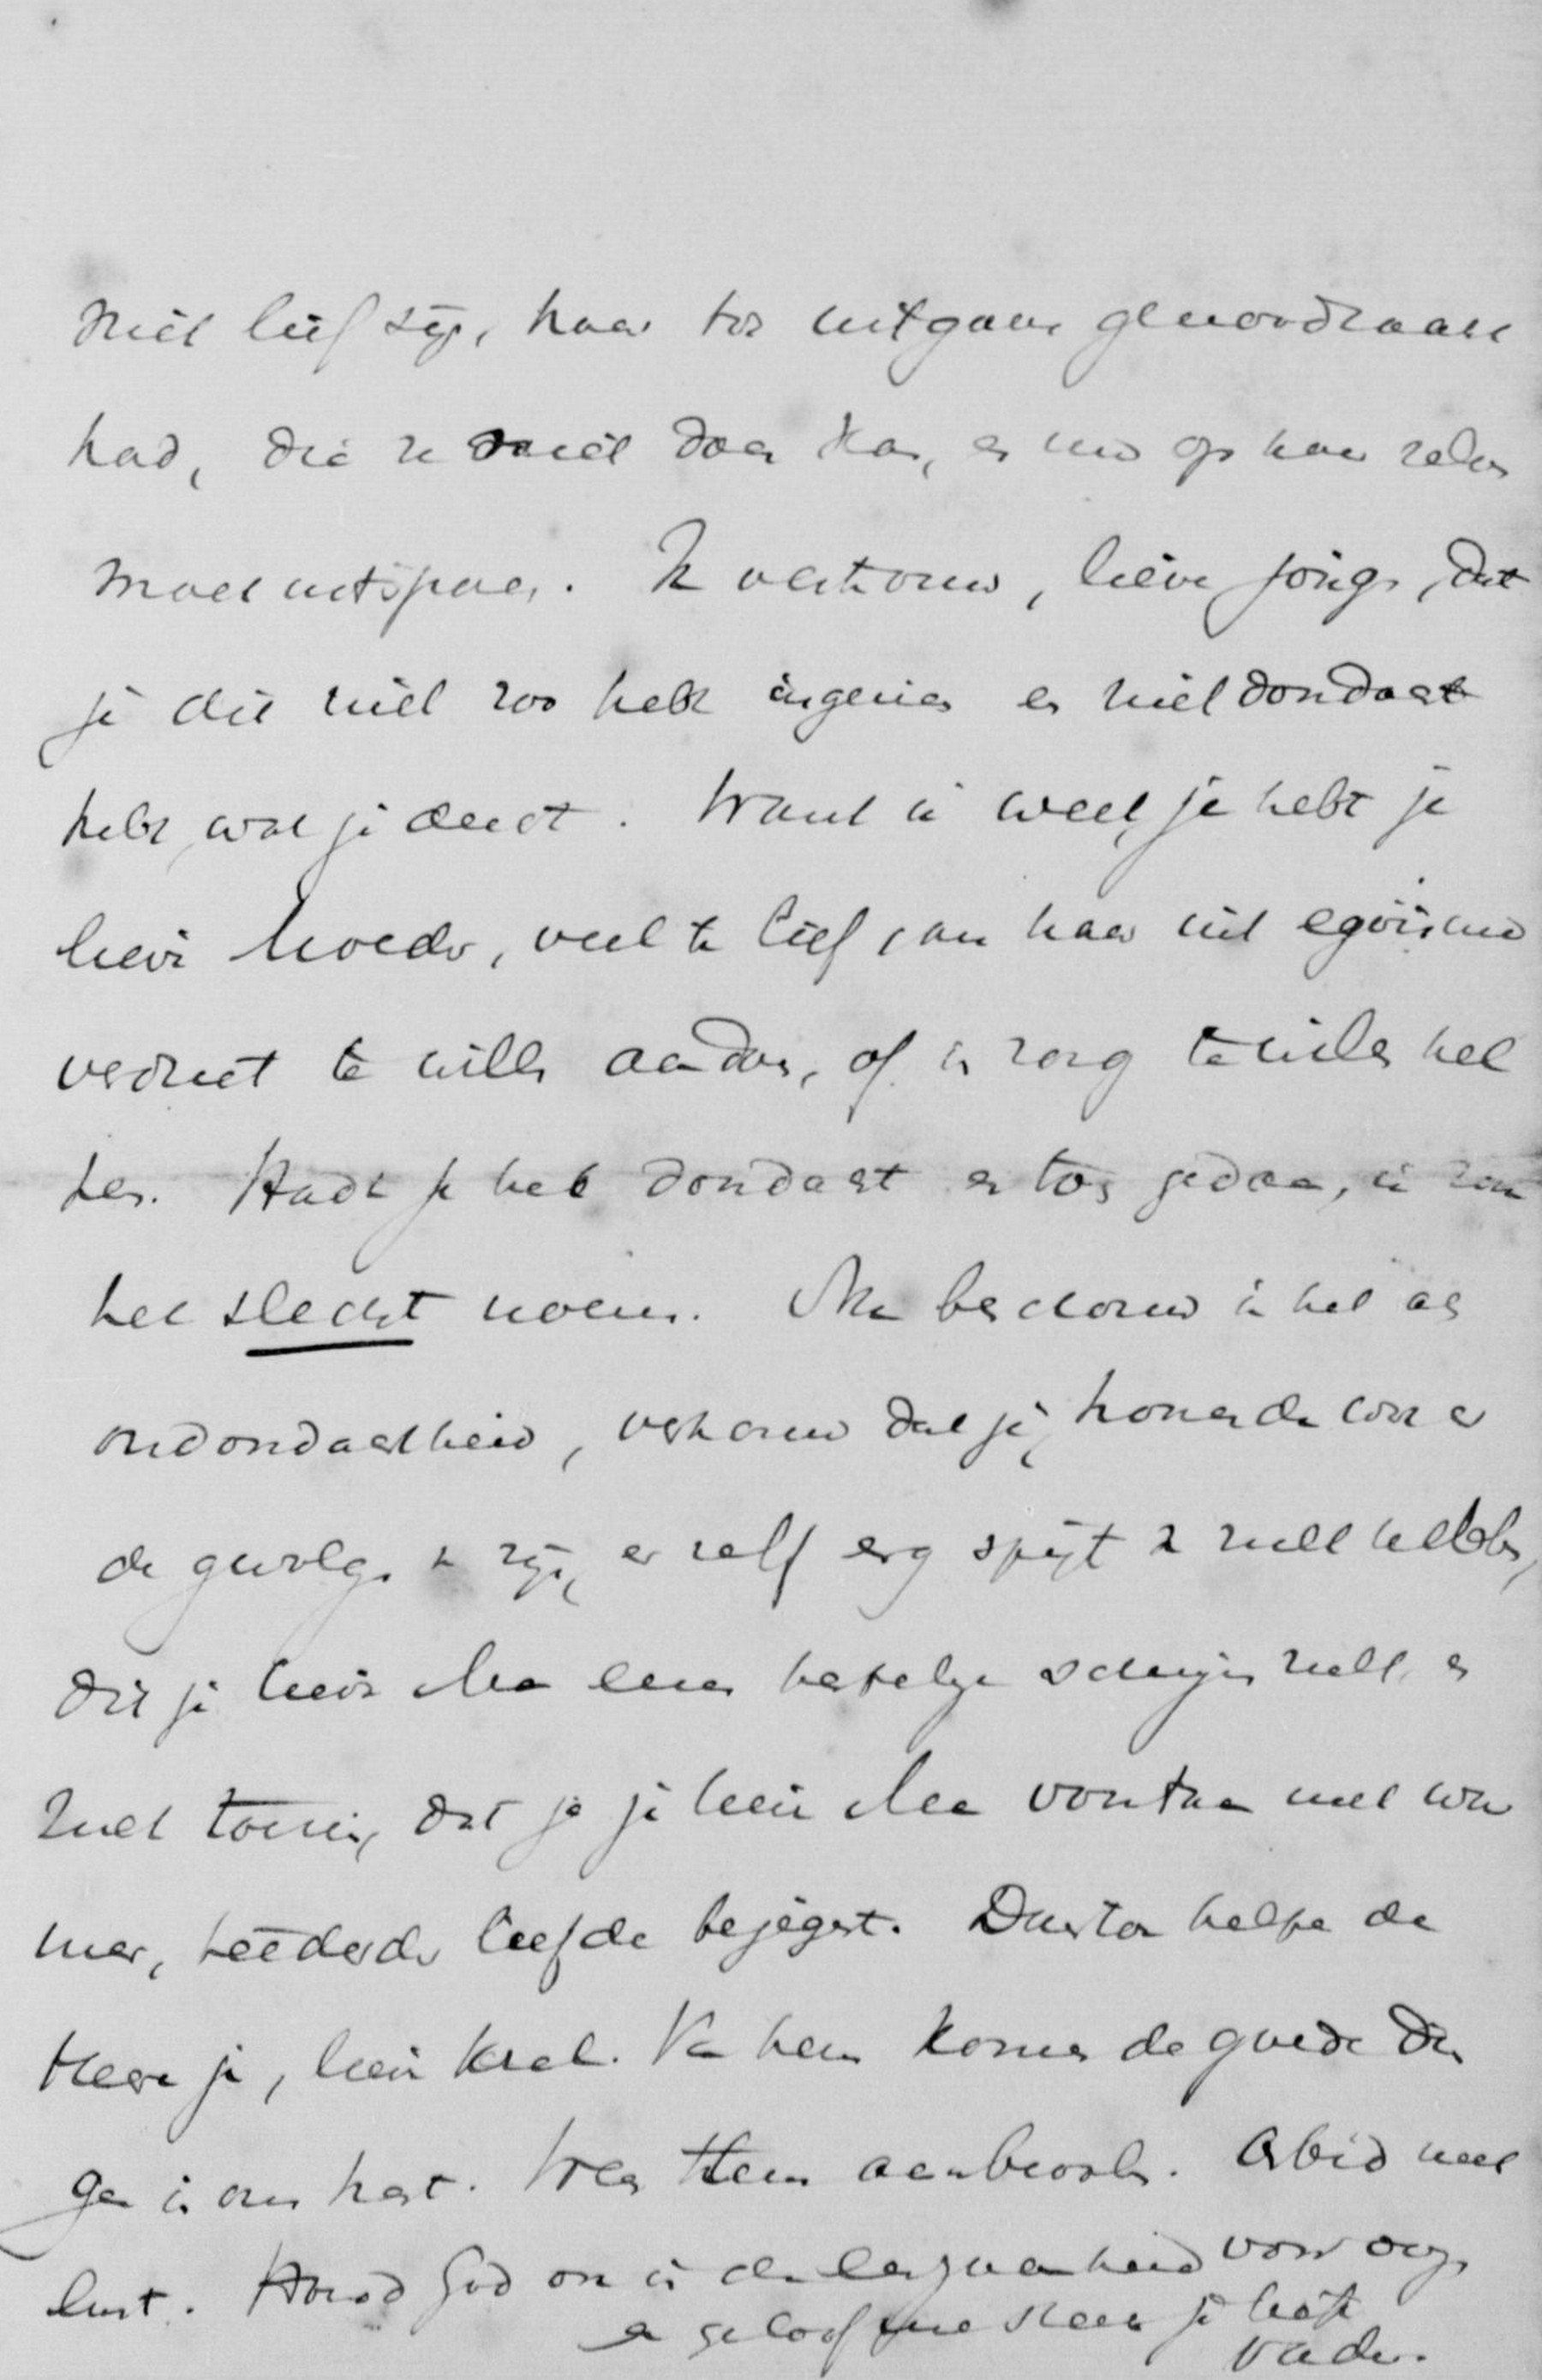 niet lief zijn, haar tot uitgaven genoodzaakt
had, die ze niet doen kan, en nu op haar zelve
moet uitsparen. Ik vertrouw, lieve jongen, dat
je dit niet zoo hebt ingezien en niet doordacht
hebt, wat je deedt. Want ik weet, je hebt je
lieve Moeder, veel te lief, om haar uit egoïsme
verdriet te willen aandoen, of in zorg te willen hel
pen. Hadt je het doordacht en toch gedaan, ik zou
het slecht noemen. Nu beschouw ik het als
ondoordachtheid, vertrouw dat je, horende wat er
de gevolgen van zijn, er zelf erg spijt van zult hebben,
dit je lieve Ma eens hartelijk schrijven zult, en
zult toonen, dat je je lieve Ma voortaan met war
mer, teederder liefde bejegent. Daartoe helpe de
Heere je, lieve Karel. Van hem komen de goede din
gen in ons hart. Wees Hem aanbevolen. Arbeid met
lust. Houd God ook in de eenzaamheid voor oogen
en geloof me steeds je liefh
Vader.